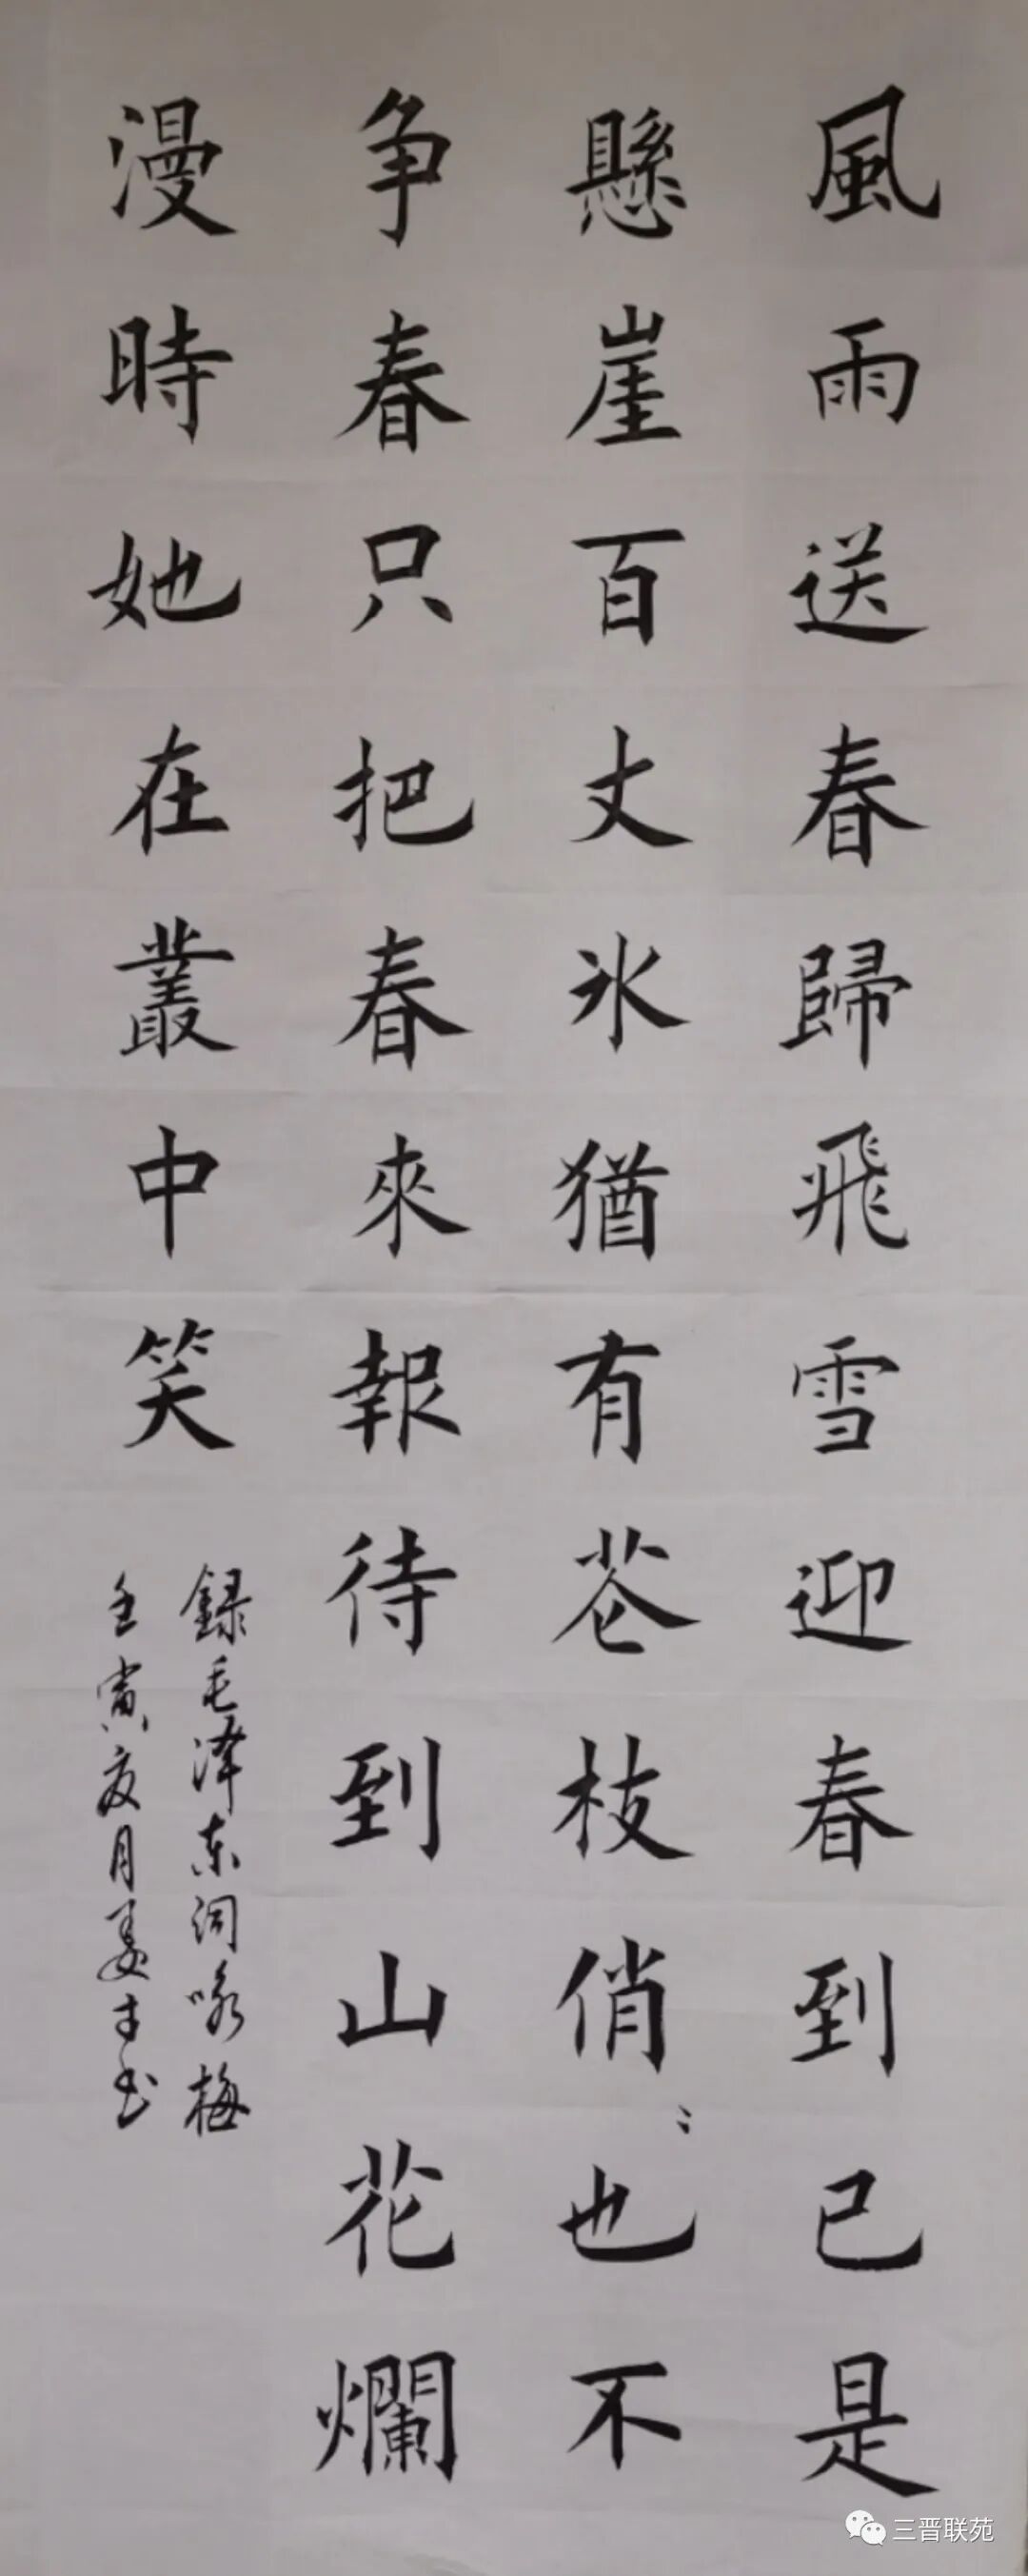 風雨送春歸飛雪迎春到已是
懸崖百丈冰猶有芲枝俏〻也不
争春只把春來報待到山花爛
漫時她在叢中笑
録毛泽东词咏梅
壬寅夏月姜书
三晋联苑